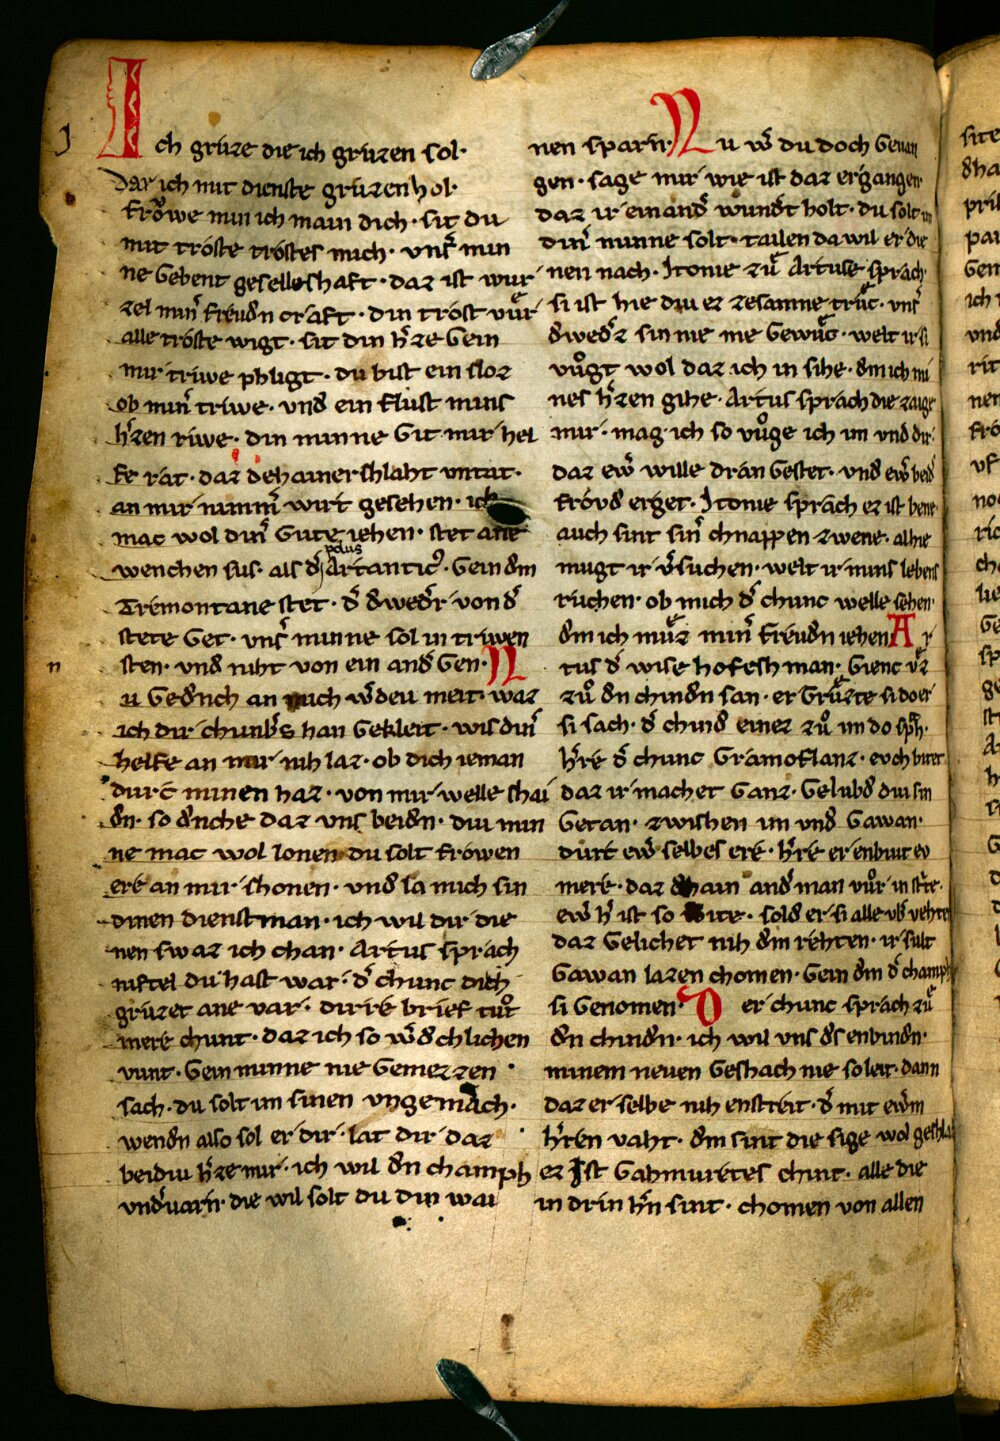 Ich grüze die ich grüzen sol·
Dar ich mit dienste grüzen hol·
frowe min ich main dich· sit du
mit troste trostes mich· vnser min
ne gebent geselleshaft· daz ist wur
zel miner freudn craft· din trost vuͤr
alle troste wigt· sit din h̾ze gein
mir triwe phligt· du bist ein sloz
ob miner triwe· vnd ein flust mins
h̾zen riwe· din minne git mir hel
fe rat· daz dehainer shlaht vntat·
an mir nimm̾ wirt gesehen· ich
mac wol din̾ gute iehen· stet ane
wenchen sus· als d̾ polus Artanticus· gein dm
Tremontane stet· d̾ dwed̾r von d̾
stete get· vns̾ minne sol in triwen
sten· vnd niht von ein and̾ gen· N
u gednch an mich w̾deu meit· waz
ich dir chunb̾s han gekleit· wis din̾
helfe an mir nih laz· ob dich ieman
durc minen haz· von mir welle shai
dn· so dnche daz vns beidn· diu min
ne mac wol lonen du solt frowen
ere an mir shonen· vnd la mich sin
dinen dienstman· ich wil dir die
nen swaz ich chan· Artus sprach
niftel du hast war· d̾ chunc dich
grüzet ane var· dirre brief tuͦt
mere chunt· daz ich so w̾dchlichen
vunt· gein minne nie gemezzen
sach· du solt im sinen vngemach·
wendn also sol er dir· lat dir daz
beidiu h̾ze mir· ich wil dn champh
vnd̾varn· die wil solt du din wai
nen sparn· Nu w̾ du doch gevan
gen· sage mir wie ist daz ergangen·
daz ir einand̾ wundt holt· du solt im
din̾ minne solt· tailen da wil er die
nen nach· Itonie zuͦ Artuse sprach·
si ist hie diu ez zesamne truͦc· vns̾
dwed̾z sin nie me gewuͦc· welt ir si
vuͦgt wol daz ich in sihe· dm ich mi
nes h̾zen gihe· Artus sprach die zaige
mir· mag ich so vuͦge ich im vnd dir·
daz ew̾ wille dran gestet· vnd ew̾ beid̾
frovd erget· Itonie sprach ez ist bene
auch sint sin̾ chnappen zwene· alhie
mugt ir v̾suchen· welt ir mins lebens
ruchen· ob mich d̾ chunc welle sehen·
dm ich muͦz min̾ freudn iehen A r
tus d̾ wise hofesh man· gienc vͤz
zuͦ dn chindn san· er gruͦzte si do er
si sach· d̾ chind einez zuͦ im do sprh·
h̾re d̾ chunc Gramoflanz· evch bitet
daz ir machet ganz· gelubd diu sin
getan· zwishen im vnd Gawan·
durc ew̾ selbes ere· h̾re er enbiut ev
mere· daz dhain and̾ man vuͦr in st̾te·
ew̾ h̾ ist so wite· sold er si alle vb̾ vehten
daz gelichet nih dm rehten· ir sult
Gawan lazen chomen· gein dm d̾ champh
si genomen· D er chunc sprach zuͦ
dn chindn· ich wil vns ds enbindn·
minem neuen geshach nie so leit· dann
daz er selbe nih enstreit· d̾ mit ew̾m
h̾ren vaht· dm sint die sige wol geshla
ez Ist Gahmuretes chint· alle die
in drin h̾n sint· chomen von allen